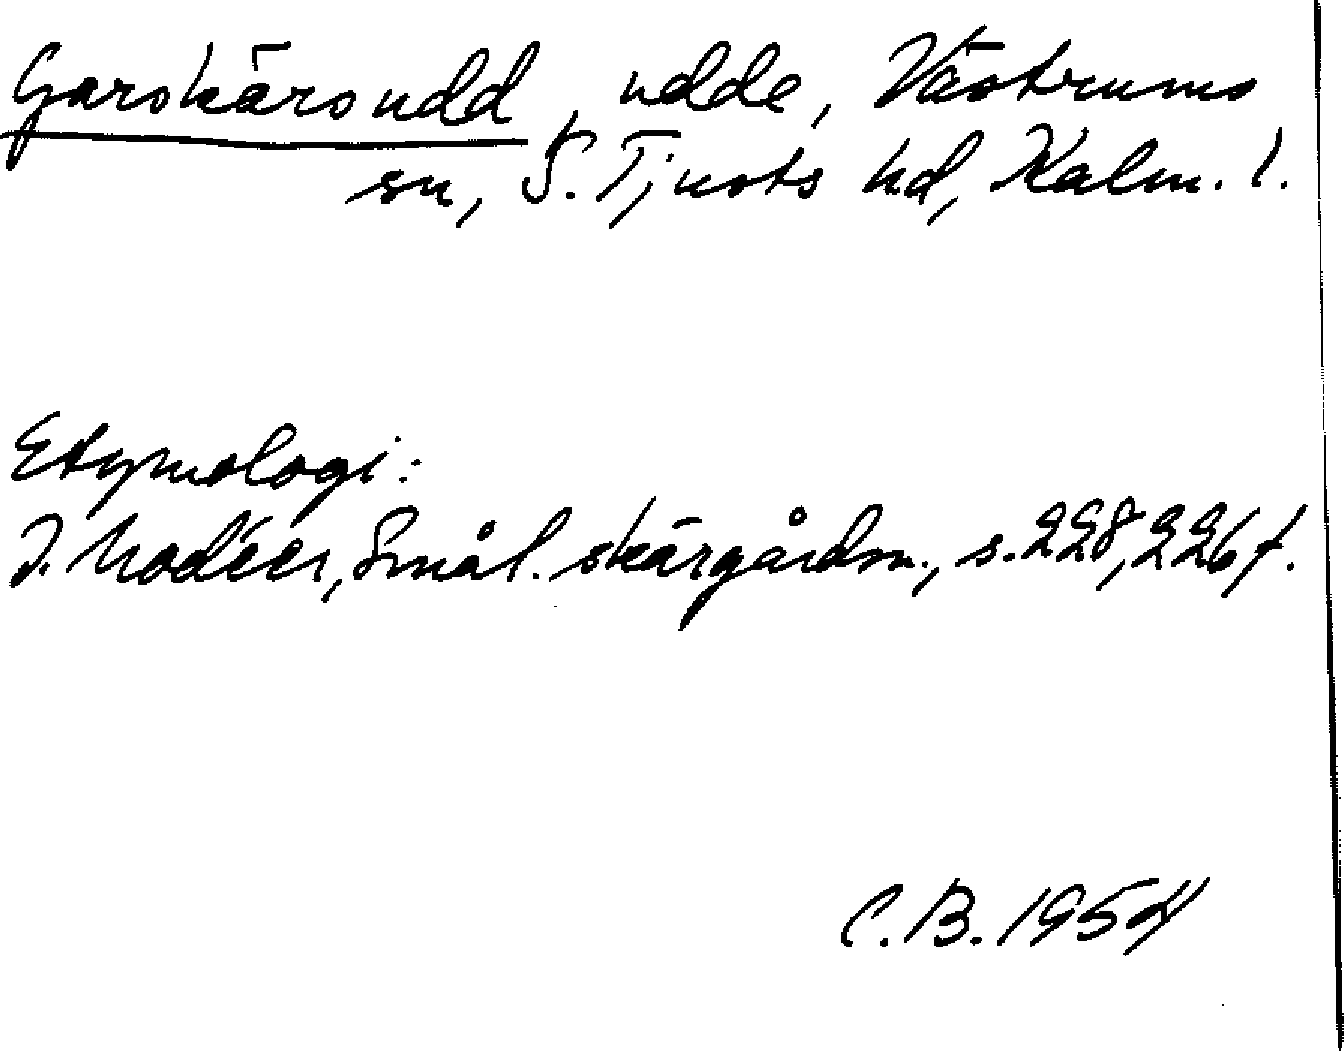 Garskärsudd, udde, Västrums
sn, S. Tjusts hd, Kalm. l.
Etymologi:
I. Modéer, Smål. skärgårdsn., s. 228, 226 f.
C. B. 1954